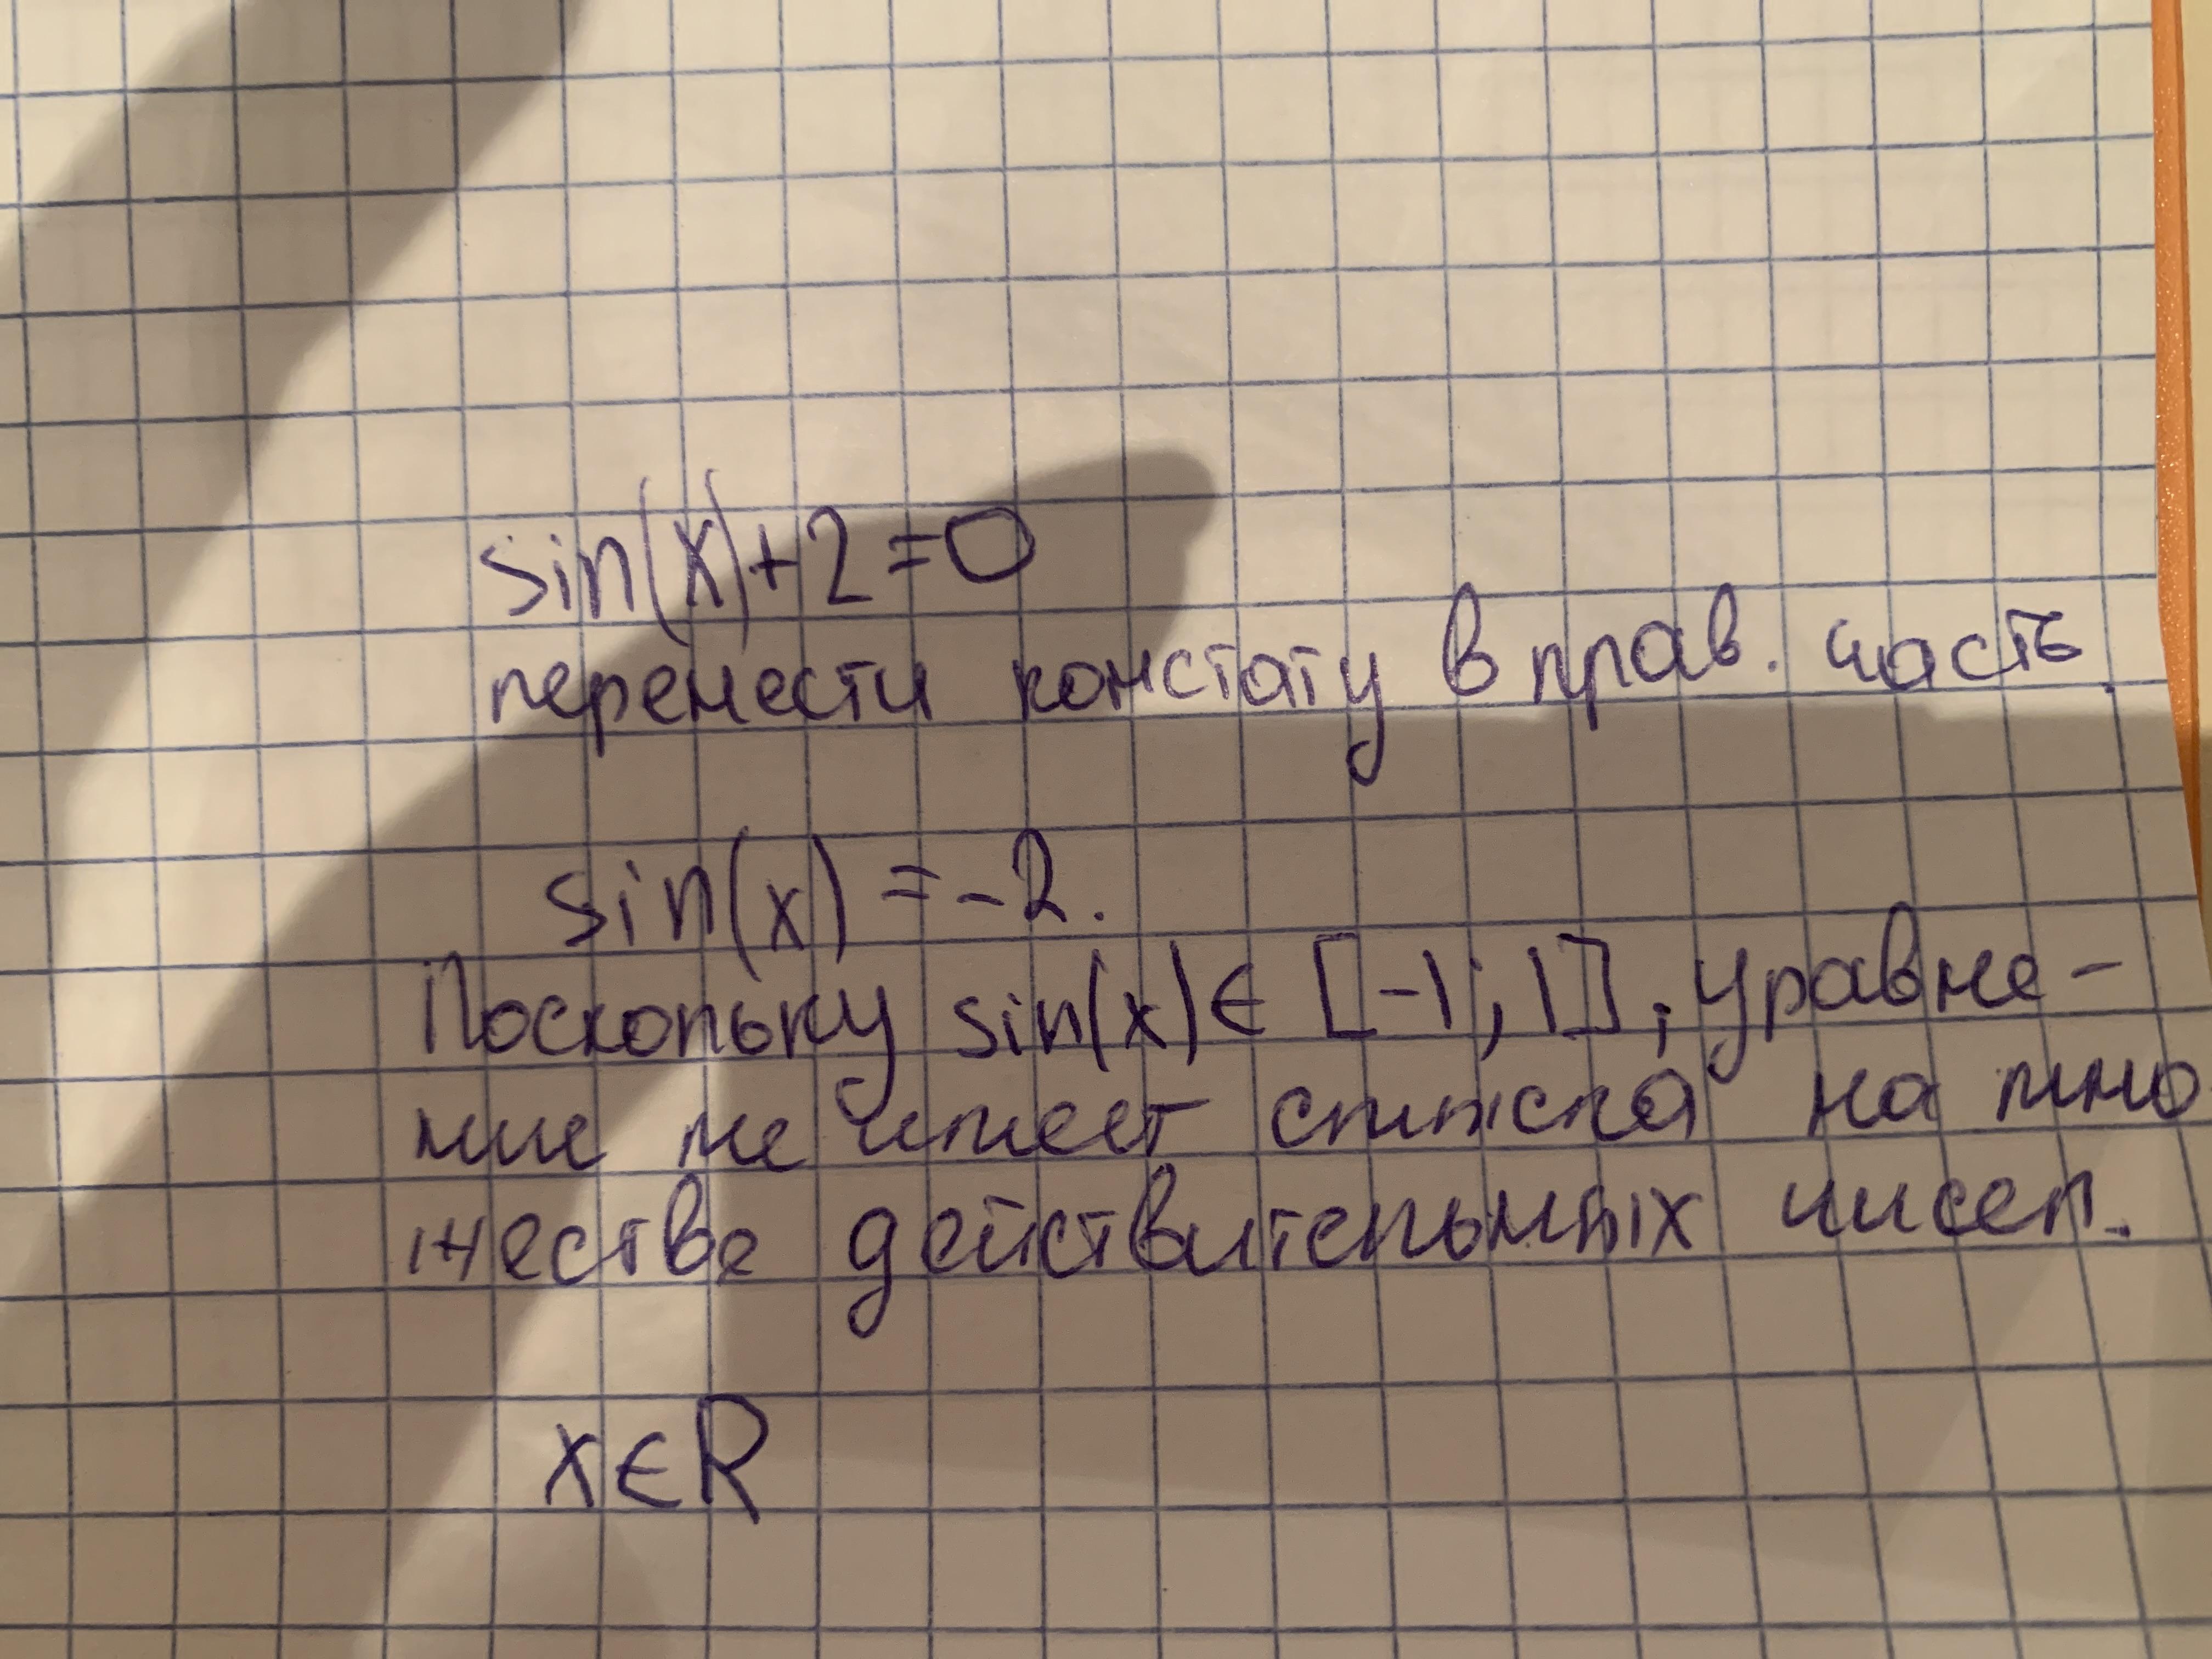 sin(x)+2=0
перенести констату в прав. часть.
sin(x) = -2.
Поскольку sin(x)∈ [-1; 1], уравне-
ние не имеет смысла на мно
жестве действительных чисел.
x∈R